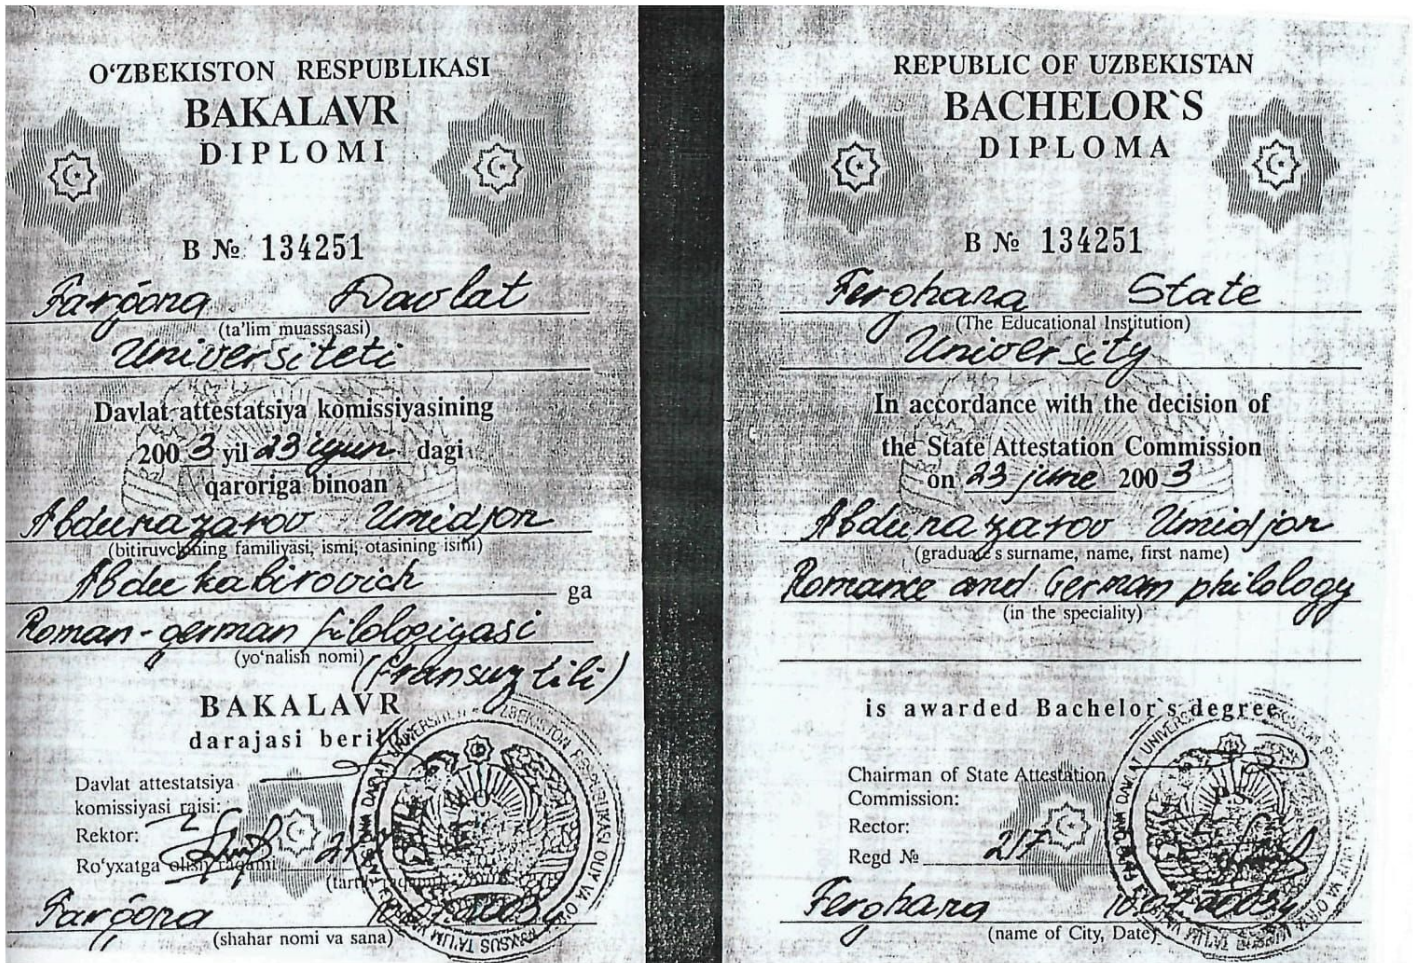 O‘ZBEKISTON RESPUBLIKASI
BAKALAVR
DIPLOMI
B № 134251
Farg'ona Davlat
(ta'lim muassasasi)
Universiteti
Davlat attestatsiya komissiyasining
2003 yil 23 iyun dagi
qaroriga binoan
Abdunazarov Umidjon
(bitiruvchining familiyasi, ismi, otasining ismi)
Abdukabirovich ga
Roman-german filologiyasi
(yo‘nalish nomi)
(fransuz tili)
BAKALAVR
darajasi
Davlat attestatsiya
komissiyasi raisi:
Rektor:
Ro‘yxatga olish raqami
Farg'ona
(shahar nomi va sana)
REPUBLIC OF UZBEKISTAN
BACHELOR`S
DIPLOMA
B № 134251
Ferghana State
(The Educational Institution)
University
In accordance with the decision of
the State Attestation Commission
on 23 june 2003
Abdunazarov Umidjon
(graduate's surname, name, first name)
Romance and German philology
(in the speciality)
is awarded Bachelor`s degree
Chairman of State Attestation
Commission:
Rector:
Regd № 217
Ferghana
(name of City, Date)